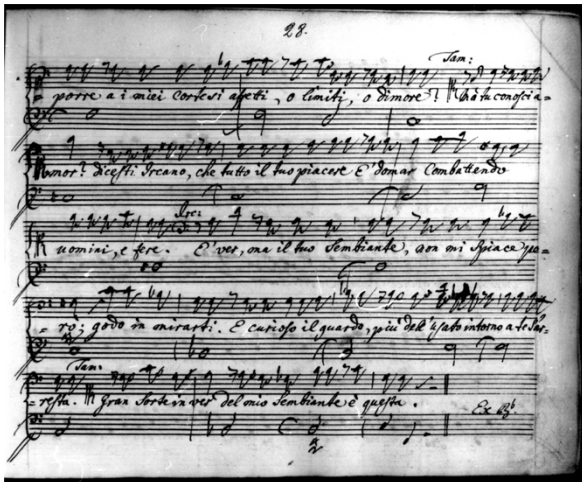 28.
Tam:
porre a i miei cortesi afetti, o limiti, o dimore? Mà tu conosci a=
=mor? dicesti Ircano, che tutto il tuo piacere E' domar Combattendo
Irc:
uomini, e fere. E' ver, ma il tuo Sembiante, non mi spiace pe=
=rò; godo in mirarti. E curioso il guardo, più dell' usato intorno a te s'ar=
Tam:
=resta. Gran Sorte in ver del mio Sembiante è questa.